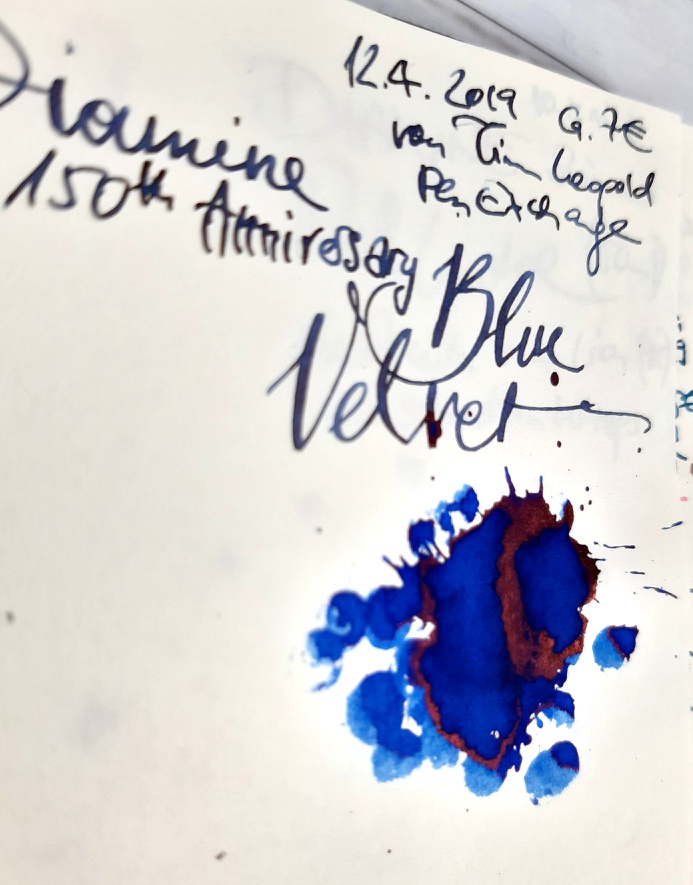 Diamine
150th Anniversary
Blue
Velvet
12.4.2019 G.7€
von Tim Leopold
Pen Exchange